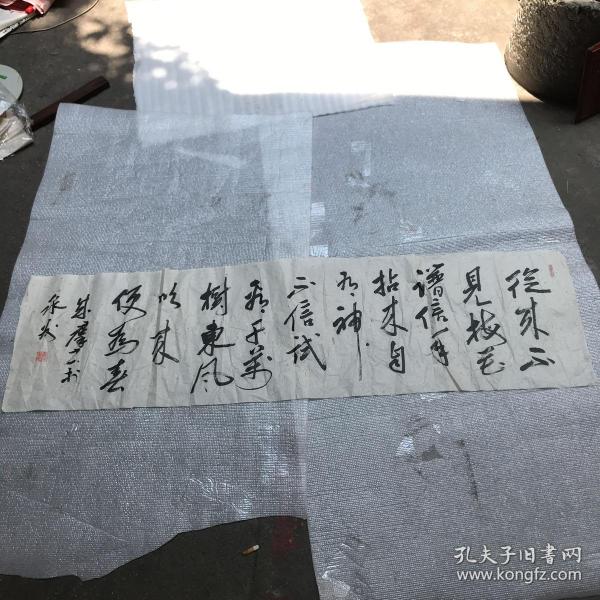 從來不
見梅花
譜信手
拈來自
有神
不信試
看千萬
樹東風
吹來
便為春
孔夫子旧書网
www.kongfz.com